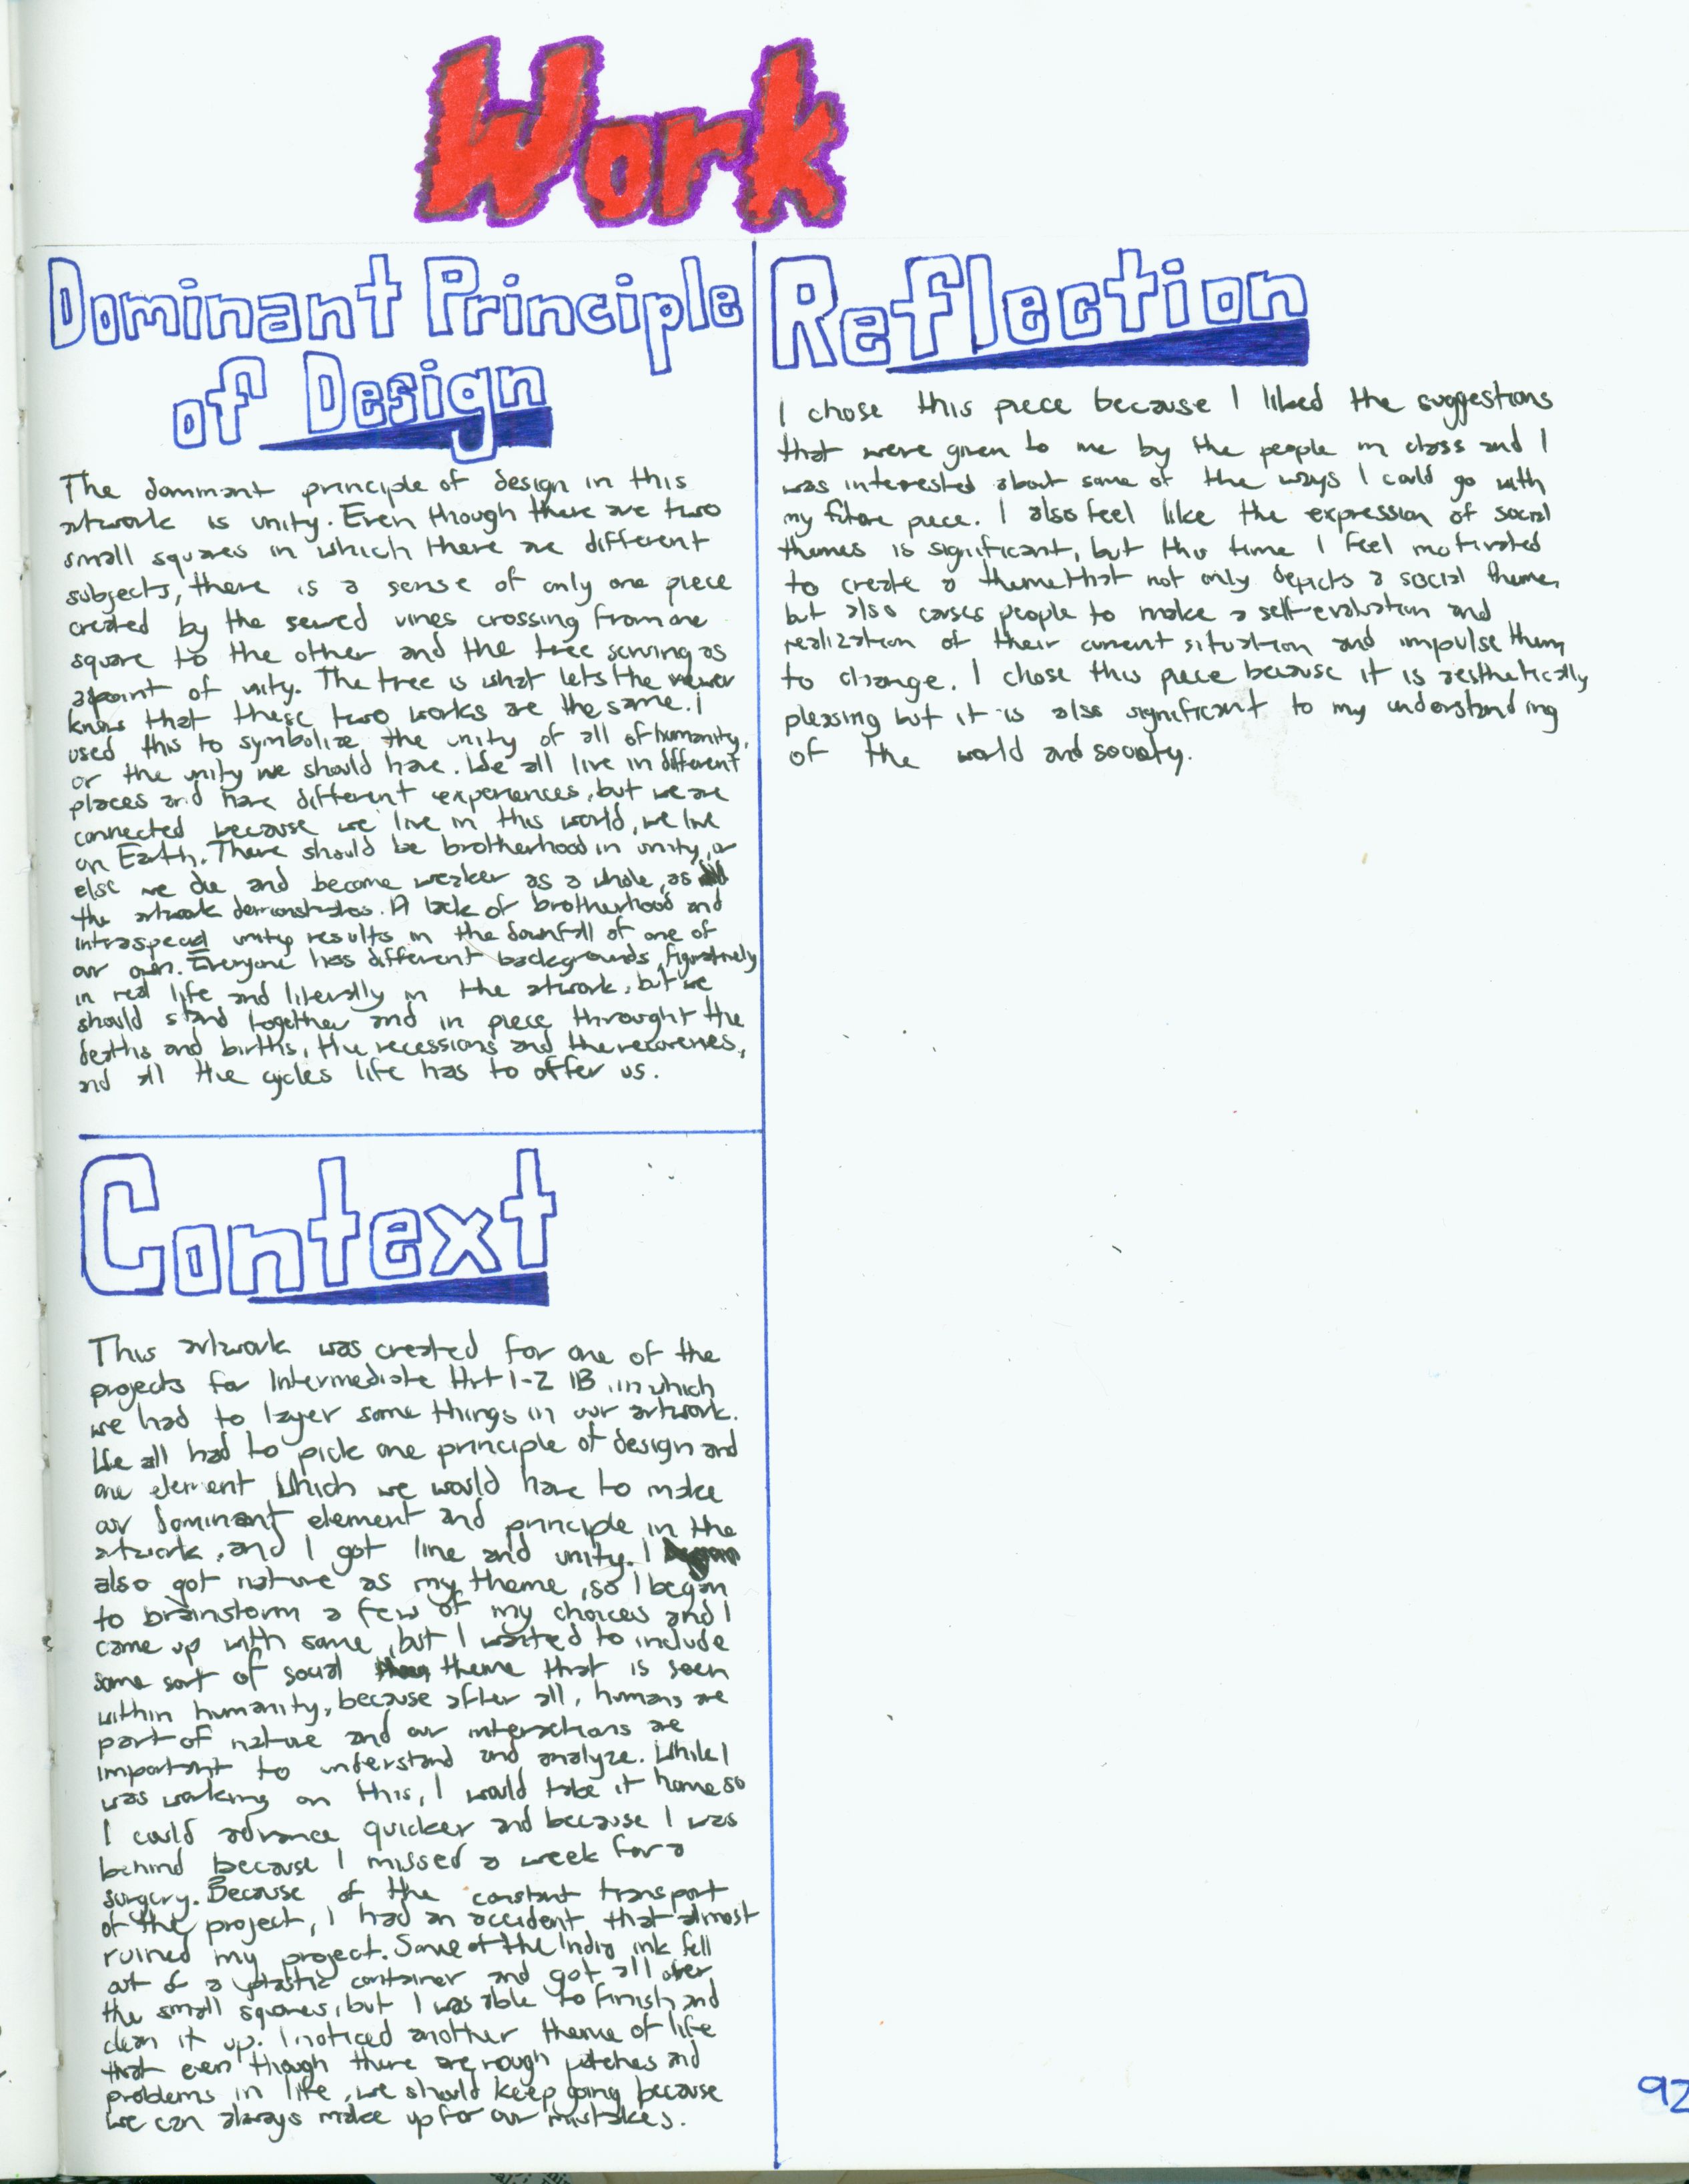 Work
Dominant Principle
of Design
The dominant principle of design in this
artwork is unity. Even though there are two
small squares in which there are different
subjects, there is a sense of only one piece
created by the sewed vines crossing from one
square to the other and the tree serving as
a point of unity. The tree is what lets the viewer
know that these two works are the same. I
used this to symbolize the unity of all of humanity,
or the unity we should have. We all live in different
places and have different experiences, but we are
connected because we live in this world, we live
on Earth. There should be brotherhood in unity, or
else we die and become weaker as a whole, as
the artwork demonstrates. A lack of brotherhood and
intraspecial unity results in the downfall of one of
our own. Everyone has different backgrounds, figuratively
in real life and literally in the artwork, but we
should stand together and in piece throught the
deaths and births, the recessions and the recoveries,
and all the cycles life has to offer us.
Context
This artwork was created for one of the
projects for Intermediate Art 1-2 IB, in which
we had to layer some things in our artwork.
We all had to pick one principle of design and
one element which we would have to make
our dominant element and principle in the
artwork, and I got line and unity. I
also got nature as my theme, so I began
to brainstorm a few of my choices and I
came up with some, but I wanted to include
some sort of social theme that is seen
within humanity, because after all, humans are
part of nature and our interactions are
important to understand and analyze. While I
was working on this, I would take it home so
I could advance quicker and because I was
behind because I missed a week for a
surgery. Because of the constant transport
of the project, I had an accident that almost
ruined my project. Some of the India ink fell
out of a plastic container and got all over
the small squares, but I was able to finish and
clean it up. I noticed another theme of life
that even though there are rough patches and
problems in life, we should keep going because
we can always make up for our mistakes.
Reflection
I chose this piece because I liked the suggestions
that were given to me by the people in class and I
was interested about some of the ways I could go with
my future piece. I also feel like the expression of social
themes is significant, but this time I feel motivated
to create a theme that not only depicts a social theme,
but also causes people to make a self-evaluation and
realization of their current situation and impulse them
to change. I chose this piece because it is aesthetically
pleasing but it is also significant to my understanding
of the world and society.
92